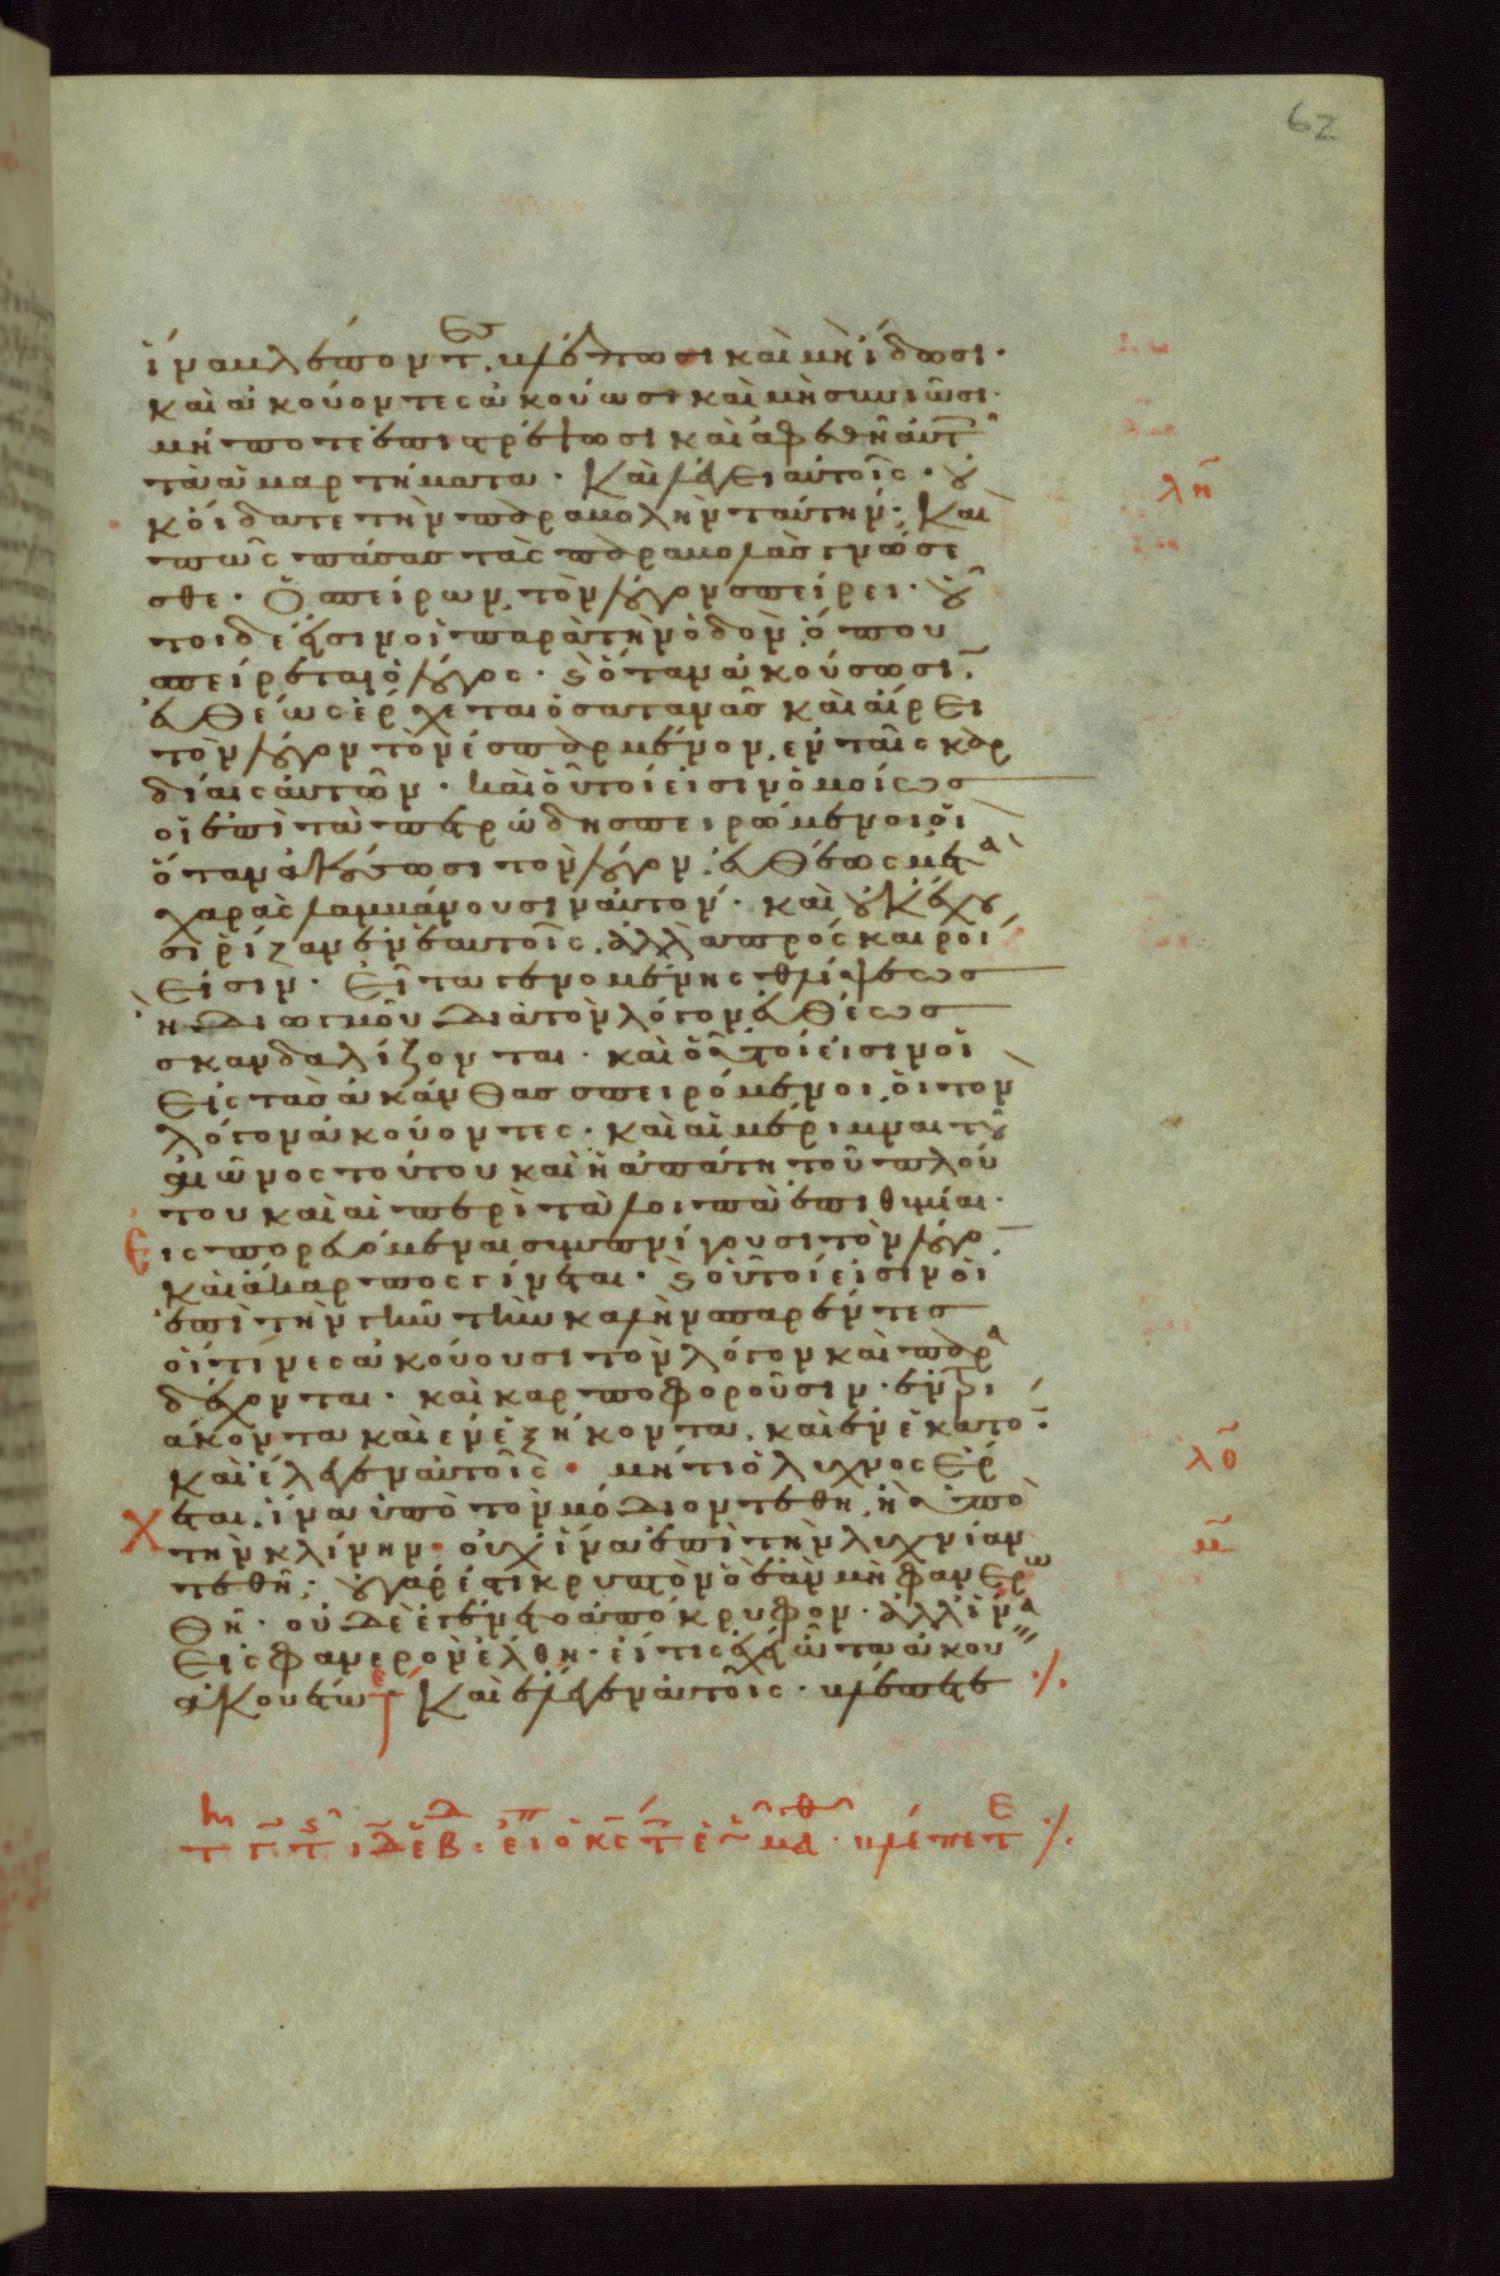 62
ἵνα βλέποντες βλέπωσι καὶ μὴ ἴδωσι·
καὶ ἀκούοντες ἀκούωσι καὶ μὴ συνιῶσι·
μήποτε ἐπιστρέψωσι καὶ ἀφεθῆ αὐτ
τὰ ἁμαρτήματα· Καὶ λέγει αὐτοῖς· οὐ
λη
κ οἴδατε τὴν παραβολὴν ταύτην· Καὶ
πῶς πάσας τὰς παραβολὰς γνώσε
σθε· Ὁ σπείρων τὸν λόγον σπείρει· οὗ
τοι δέ εἰσιν οἱ παρὰ τὴν ὁδὸν ὅπου
σπείρεται ὁ λόγος· καὶ ὅταν ἀκούσωσιν
εὐθέως ἔρχεται ὁ σατανᾶς καὶ αἴρει
τὸν λόγον τὸν ἐσπαρμένον ἐν ταῖς καρ
δίαις αὐτῶν· καὶ οὗτοί εἰσιν ὁμοίως
οἱ ἐπὶ τὰ πετρώδη σπειρώμενοι οἳ
ὅταν ἀκούσωσι τὸν λόγον εὐθέως μετὰ
χαρᾶς λαμβάνουσιν αὐτόν· καὶ οὐκ ἔχου
σι ρίζαν ἐν ἑαυτοῖς ἀλλὰ πρόσκαιροί
εἰσιν· Εἶτα γενομένης θλίψεως
ἢ διωγμοῦ διὰ τὸν λόγον εὐθέως
σκανδαλίζονται· καὶ οὗτοί εἰσιν οἱ
εἰς τὰς ἀκάνθας σπειρόμενοι οἱ τὸν
λόγον ἀκούοντες· καὶ αἱ μέριμναι τοῦ
αἰῶνος τούτου καὶ ἡ ἀπάτη τοῦ πλού
του καὶ αἱ περὶ τὰ λοιπὰ ἐπιθυμίαι·
Εἰσπορευόμεναι συμπνίγουσι τὸν λόγον
καὶ ἄκαρπος γίνεται· καὶ οὗτοί εἰσιν οἱ
ἐπὶ τὴν γῆν τὴν καλὴν σπαρέντες
οἵτινες ἀκούουσι τὸν λόγον καὶ παρα
δέχονται· καὶ καρποφοροῦσιν· ἐν τρι
άκοντα καὶ ἐν ἑξήκοντα καὶ ἐν ἑκατόν·
Καὶ ἔλεγεν αὐτοῖς· μήτι ὁ λύχνος ἔρ
λθ
χεται ἵνα ὑπὸ τὸν μόδιον τεθῆ ἢ ὑπὸ
τὴν κλίνην· οὐχ ἵνα ἐπὶ τὴν λυχνίαν
μ
τεθῆ· οὐ γάρ ἐστι κρυπτὸν ὃ ἐὰν μὴ φανερω
θῆ· οὐδὲ ἐγένετο ἀπόκρυφον· ἀλλ ἵνα
εἰς φανερὸν ἔλθη· εἴ τις ἔχει ὦτα ἀκούειν
ἀκουέτω Καὶ ἔλεγεν αὐτοῖς· βλέπετε